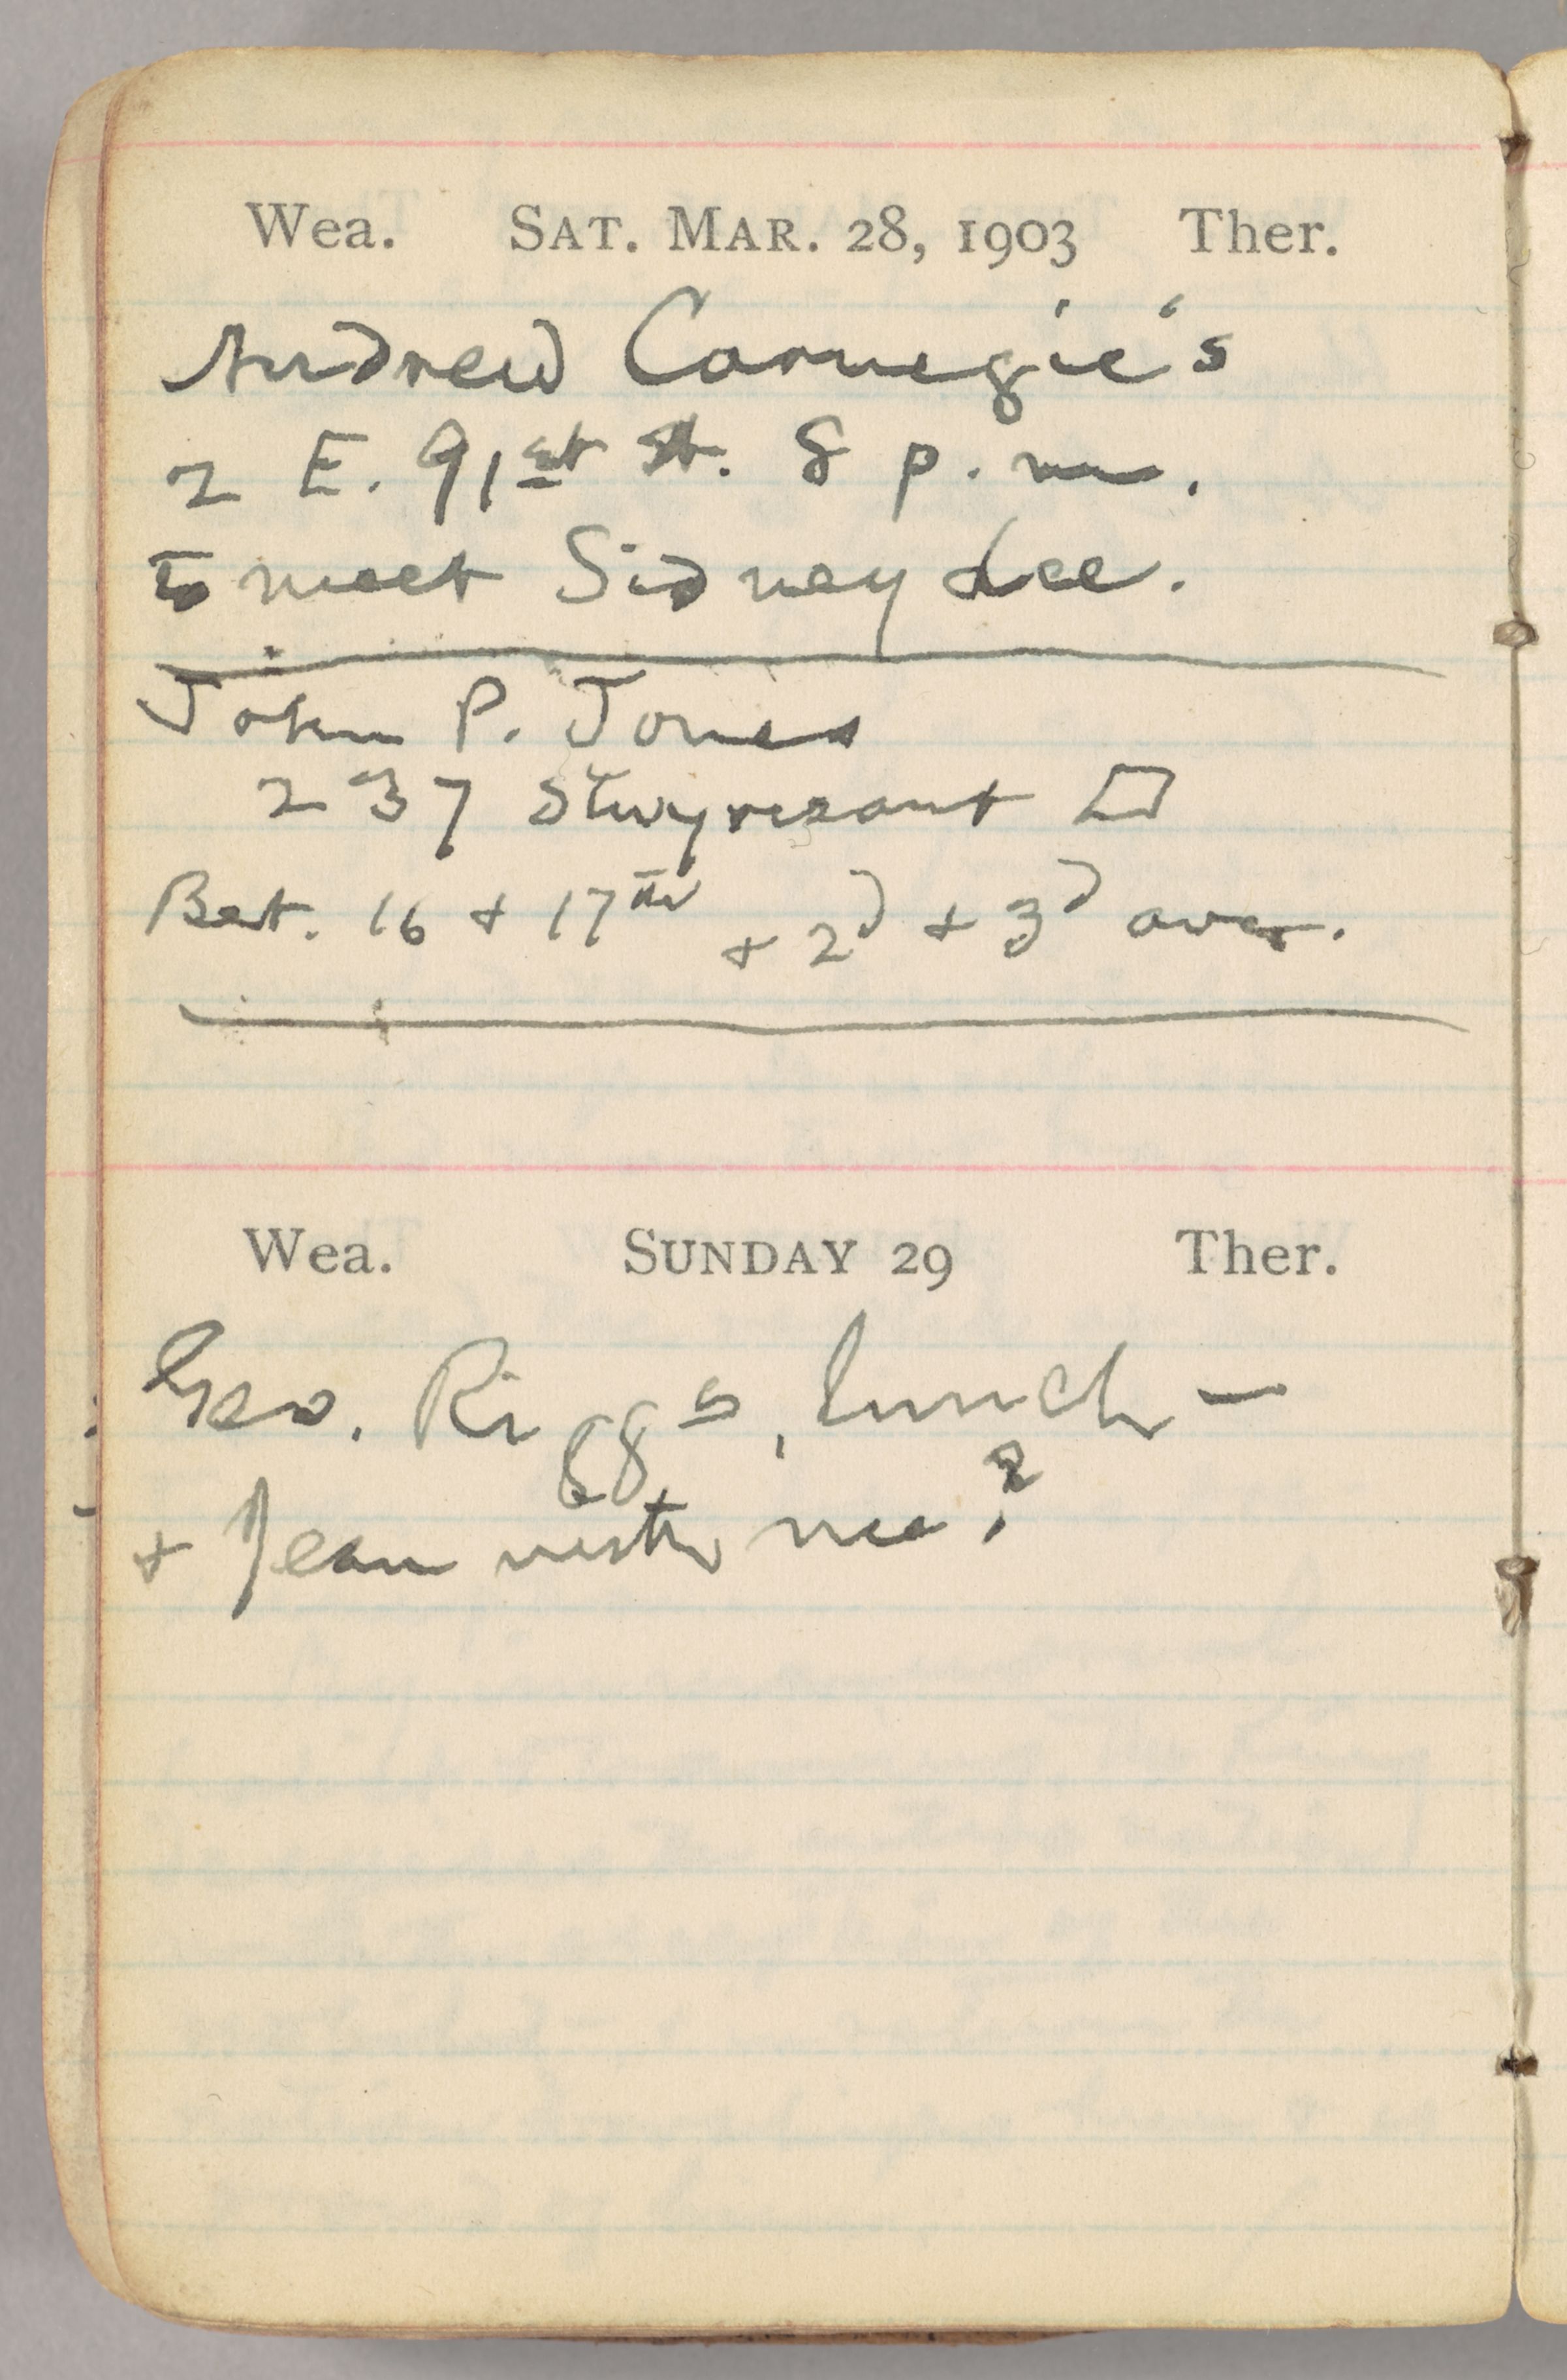 Wea. SAT. MAR. 28, 1903 Ther.
Andrew Carnegie's
2 E. 91st St. 8 p.m.
to meet Sidney Lee.
John P. Jones
237 Stuyvesant □
Bet. 16 + 17th + 2d + 3d aves.
Wea. SUNDAY 29 Ther.
Geo. Riggs, lunch —
+ Jean with me?